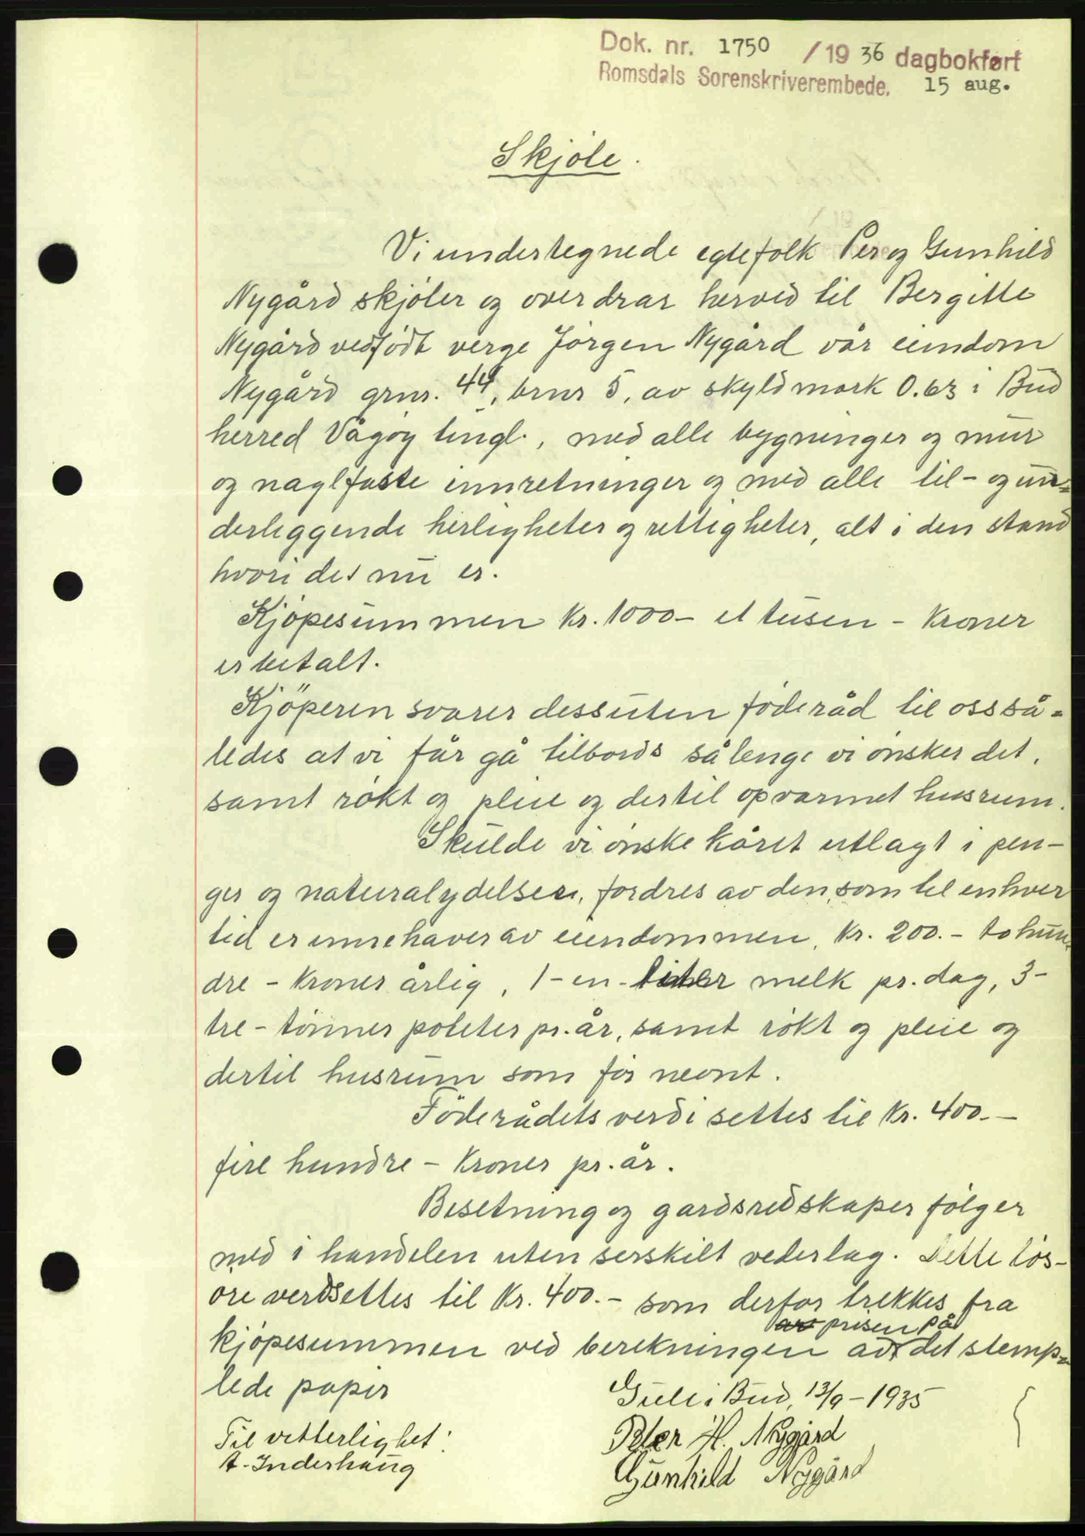 Dok. nr. 1750 / 19 36 dagbokført
Romsdals Sorenskriverembede. 15 aug.
Skjöte.
Vi undertegnede egtefolk Per og Gunhild
Nygård skjöter og overdrar herved til Bergitte
Nygård ved födt verge Jörgen Nygård vår eiendom
Nygård grnr. 44, brnr 5, av skyldmark 0.63 i Bud
herred Vågöy tingl., med alle bygninger og mur
og naglfaste innretninger og med alle til- og un=
derliggende herligheter og rettigheter, alt i den stand
hvori det nu er.
Kjöpesummen Kr. 1000 - et tusen - Kroner
er betalt.
Kjöperen svarer dessuten föderåd til oss så=
ledes at vi får gå tilbords så lenge vi önsker det,
samt rökt og pleie og dertil opvarmet husrum.
Skulde vi önske kåret utlagt i pen-
ger og naturalydelser, fordres av den, som til enhver
tid er innehaver av eiendommen, Kr. 200.- to hun=
dre - Kroner årlig, 1 - en - liter melk pr. dag, 3 -
tre - tönner poteter pr. år, samt rökt og pleie og
dertil husrum som för nevnt.
Föderådets verdi settes til Kr. 400.-
fire hundre - Kroner pr. år.
Besetning og gardsredskaper fölger
med i handelen uten serskilt vederlag. Dette lös-
öre verdsettes til Kr. 400.- som derfor trekkes fra
prisen på
kjöpesummen ved berekningen av det stemp=
lede papir
Gule i Bud, 13/9 - 1935
Til vitterlighet:
Peter H. Nygård
A. Inderhaug
Gunhild Nygård